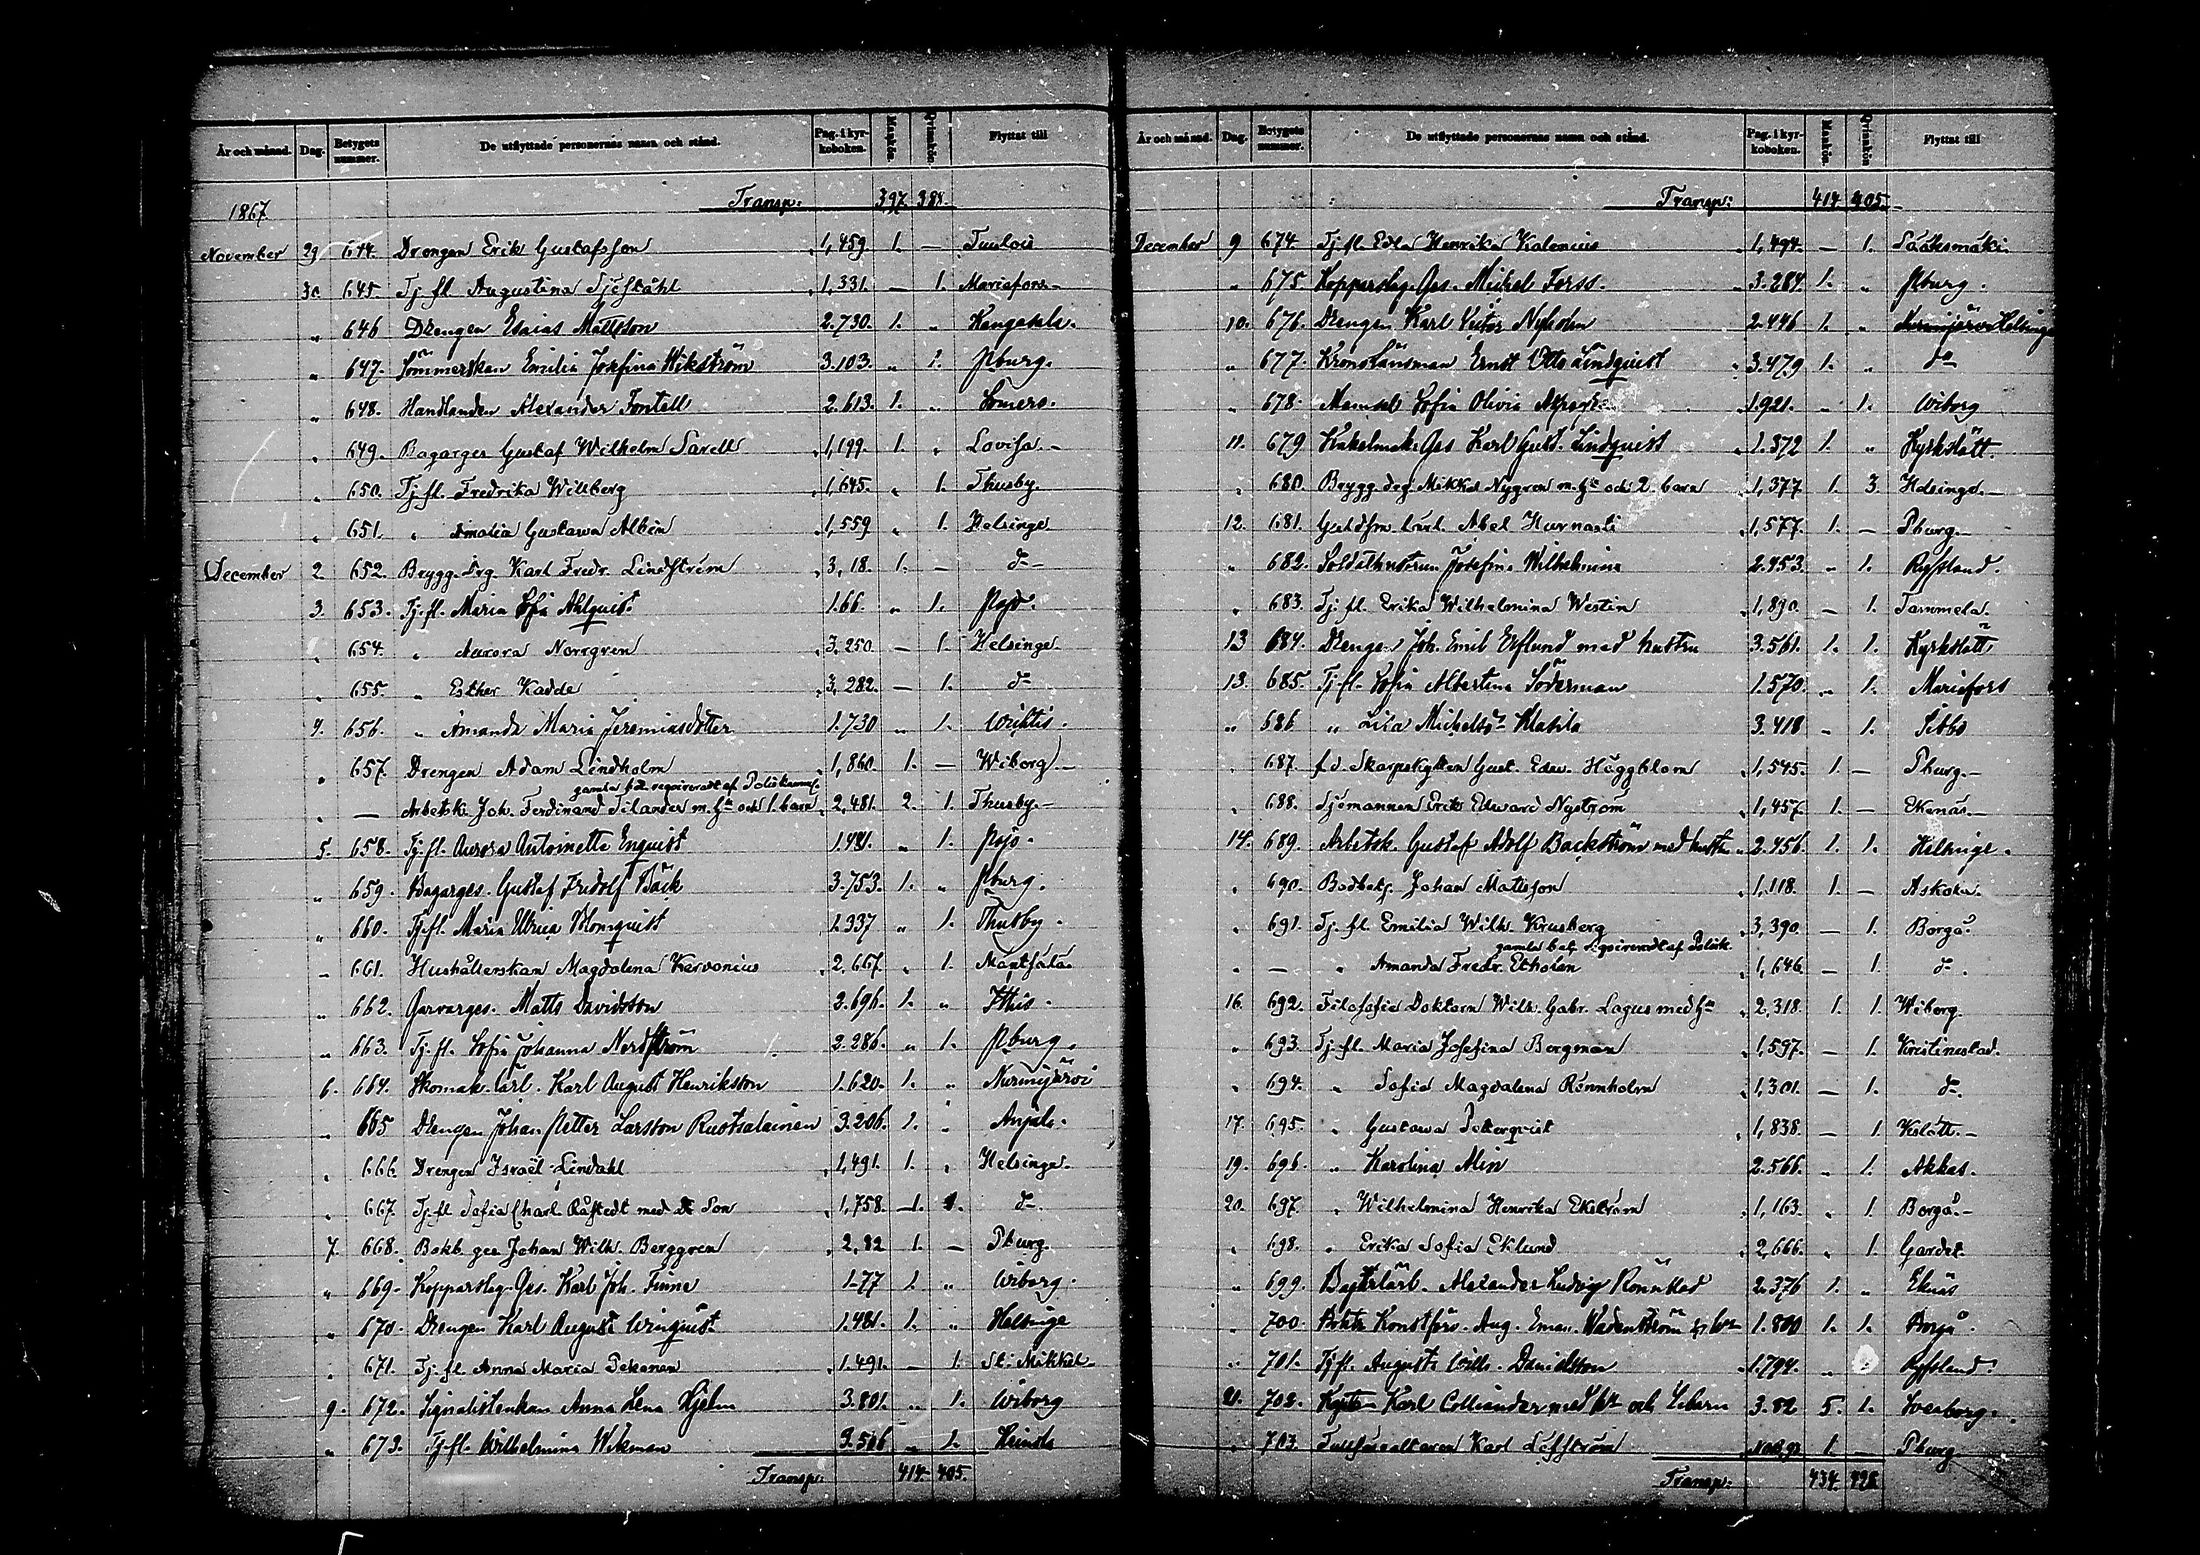 År och månad. Dag. Betygets nummer. De utflyttade personernas namn och stånd. Pag. i kyrkoboken. Mankön. Qvinkön. Flyttat till
1867 Transp: 397 388.
November 29 644. Drengen Erik Gustafsson 1,459. 1. — Tuulois
30 645. Tj. fl. Augustina Sjöståhl 1,331. — 1. Mariefors
" 646 Drengen Esaias Mattsson 2.730. 1. " Kangasala.
" 647. Sömmerskan Emilia Josefina Wikström 3.103. " 1. Pburg.
" 648. Handlanden Alexander Fontell 2.613. 1. " Somero.
" 649. Bagarges Gustaf Wilhelm Sarell 1,199. 1. " Lovisa.
" 650. Tj. fl. Fredrika Willberg 1,645. " 1. Thusby.
" 651. " Amalia Gustava Albin 1,559 " 1. Helsinge
December 2 652. Brygg. drg. Karl Fredr. Lindström 3,18. 1. — do
3. 653. Tj. fl. Maria Sofia Ahlquist 1.66. " 1. Pojo.
" 654. " Aurora Norrgren 3.250. — 1. Helsinge
" 655. " Esther Kadde 3,282. — 1. do
4. 656. " Amanda Maria Jeremiasdotter 1.730 " 1. Wichtis.
" 657. Drengen Adam Lindholm 1,860. 1. — Wiborg
gamla bet. reqvireradt af Poliskamm.
" — Arbetsk. Joh. Ferdinand Tilander m. hu och 1. barn 2,481. 2. 1. Thusby.
5. 658. Tj. fl. Aurora Antoinette Enquist 1.481. " 1. Pojo.
" 659. Bagarges. Gustaf Fridolf Bäck 3.753. 1. " Pburg.
" 660. Tj. fl. Maria Ulrica Blomquist 1.337 " 1. Thusby.
" 661. Hushållerskan Magdalena Kervonius 2,667. " 1. Mäntsälä
" 662. Garvarges. Matts Davidsson 3.696. 1. " Ithis.
" 663. Tj. fl. Sofia Johanna Nordström 2.286. " 1. Pburg.
6. 664. Skomak. lärl. Karl August Henriksson 1.620. 1. " Nurmijärvi
" 665 Drengen Johan Petter Larsson Ruotsalainen 3.206. 1. " Anjala.
" 666. Drengen Israel Lindahl 1,491. 1. " Helsinge.
" 667. Tj. fl. Sofia Charl. Råstedt med Son 1,758. 1. 1. do
7. 668. Bokb. ges Johan Wilh. Berggren 2,82 1. — Pburg.
" 669. Kopparslag. Ges. Karl Joh. Finne 1.77 1. " Wiborg.
" 670. Drengen Karl August Winquist 1.481. 1. " Helsinge
" 671. Tj. fl. Anna Maria Pekonen 1.491. — 1. St. Mikkel
9. 672. Signalistenkan Anna Lena Hjelm 3.801. " 1. Wiborg
" 673. Tj. fl. Wilhelmina Wikman 3.506 " 1. Heinola
Transp: 414. 405.
År och månad. Dag. Betygets nummer. De utflyttade personernas namn och stånd. Pag. i kyrkoboken. Mankön. Qvinkön Flyttat till
Transp: 414 405.
December 9 674. Tj. fl. Edla Henrika Kalenius 1,494. — 1. Sääksmäki
" 675 Kopparslag. Ges. Michel Forss. 3.284 1. " Pburg.
10. 676. Drengen Karl Victor Nyholm 2.446 1. " Nurmijärvi Helsinge
" 677. Kronolänsman Ernst Otto Lindquist 3.479 1. " do
" 678. Mamsell Sofia Olivia 1.921. " 1. Wiborg
11. 679 Kakelmak. Ges Karl Gust. Lindquist 1.372 1. " Kyrkslätt.
" 680. Brygg. drg. Mikkel Nygren m. hu och 2. barn 1,377 1. 3. Helsinge.
12. 681. Guldsm. lärl. Abel Hurnasti 1,577. 1. — Pburg.
" 682. Soldathustrun Josefina Wilhelmina 2.453. " 1. Ryssland.
" 683. Tj. fl. Erika Wilhelmina Westin 1,890. — 1. Tammela.
13 684. Drengen Joh. Emil Ekflund med hustru 3.561. 1. 1. Kyrkslätt
13. 685. Tj. fl. Sofia Albertina Söderman 1.570. " 1. Mariefors
" 686 " Lisa Michelsdr Matila 3.418 " 1. Sibbo
" 687. f.d. Skarpskytten Gust. Edw. Häggblom 1,545. 1. — Pburg.
" 688. Sjömannen Erik Edward Nyström 1,457. 1. — Ekenäs.
14. 689. Arbetsk. Gustaf Adolf Backström med hustru 2.456 1. 1. Helsinge.
" 690. Bodbetj. Johan Mattsson 1,118. 1. — Askola.
" 691. Tj. fl. Emilia Wilh. Krusberg 3,390. — 1. Borgå.
gamla bet. reqvireradt af Polisk.
" — " Amanda Fredr. Etholen 1,646 — 1. do
16. 692. Filosofie Doktorn Wilh. Gabr. Lagus med hu 2,318. 1. 1. Wiborg.
" 693. Tj. fl. Maria Josefina Bergman 1,597. — 1. Kristinestad.
" 694. " Sofia Magdalena Rönnholm 1,301. — 1. do
17. 695. " Gustava Petterqvist 1,838. — 1. Kslätt.
19. 696. " Karolina Alin 2.566. " 1. Akkas.
20. 697. " Wilhelmina Henrika Ekström 1,163. " 1. Borgå.
" 698. " Erika Sofia Eklund 2,666. " 1. Gardet.
" 699. Alexander Ludvig Rönnblad 2.376 1. " Eknäs
" 700. Konstförv. Aug. Eman. Wadenström 1.800 1. 1. Borgå.
" 701. Tj. fl. Augusta Wilh. Danielsson 1.794. " Ryssland.
21. 702. Karl Colliander med hu och barn 3.82 5. 1. Sveaborg.
" 703. Karl Löfström 1. — Pburg
Transp: 434. 428.